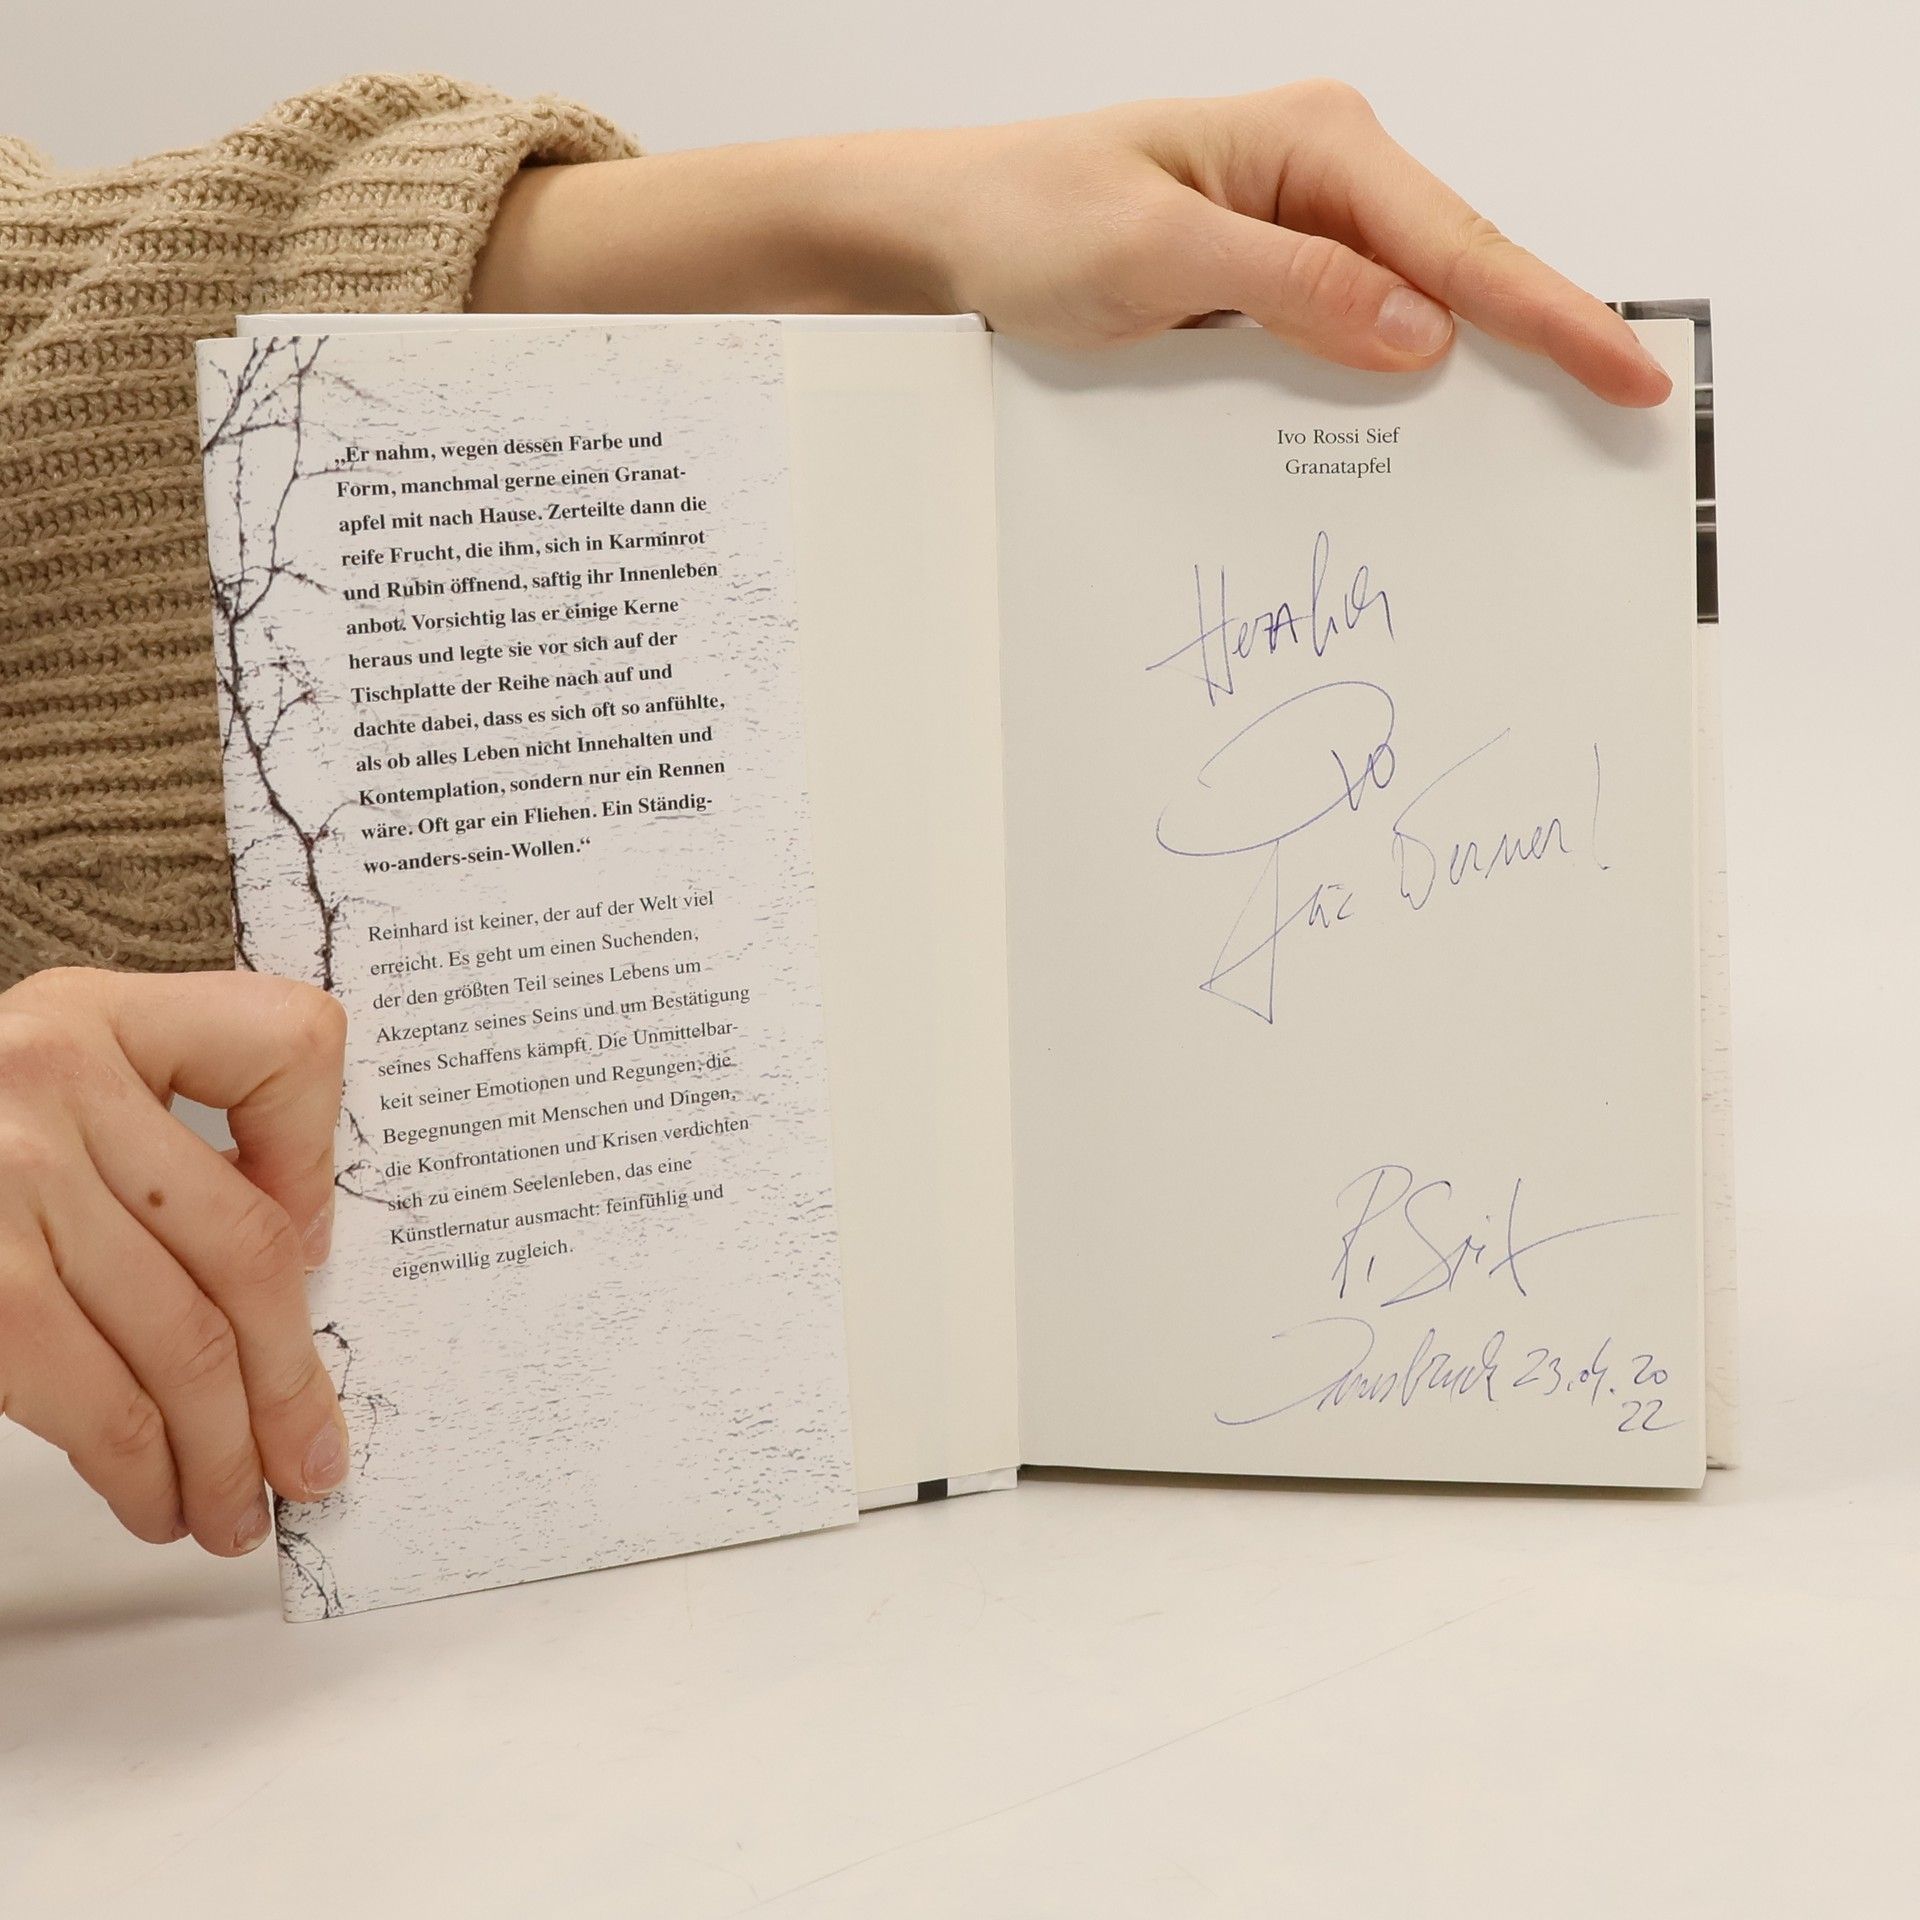 „Er nahm, wegen dessen Farbe und
Form, manchmal gerne einen Granat-
apfel mit nach Hause. Zerteilte dann die
reife Frucht, die ihm, sich in Karminrot
und Rubin öffnend, saftig ihr Innenleben
anbot. Vorsichtig las er einige Kerne
heraus und legte sie vor sich auf der
Tischplatte der Reihe nach auf und
dachte dabei, dass es sich oft so anfühlte,
als ob alles Leben nicht Innehalten und
Kontemplation, sondern nur ein Rennen
wäre. Oft gar ein Fliehen. Ein Ständig-
wo-anders-sein-Wollen.“
Reinhard ist keiner, der auf der Welt viel
erreicht. Es geht um einen Suchenden,
der den größten Teil seines Lebens um
Akzeptanz seines Seins und um Bestätigung
seines Schaffens kämpft. Die Unmittelbar-
keit seiner Emotionen und Regungen, die
Begegnungen mit Menschen und Dingen,
die Konfrontationen und Krisen verdichten
sich zu einem Seelenleben, das eine
Künstlernatur ausmacht: feinfühlig und
eigenwillig zugleich.
Ivo Rossi Sief
Granatapfel
Herzlich
Ivo
für Werner!
R. Sief
Innsbruck 23.04.20
22